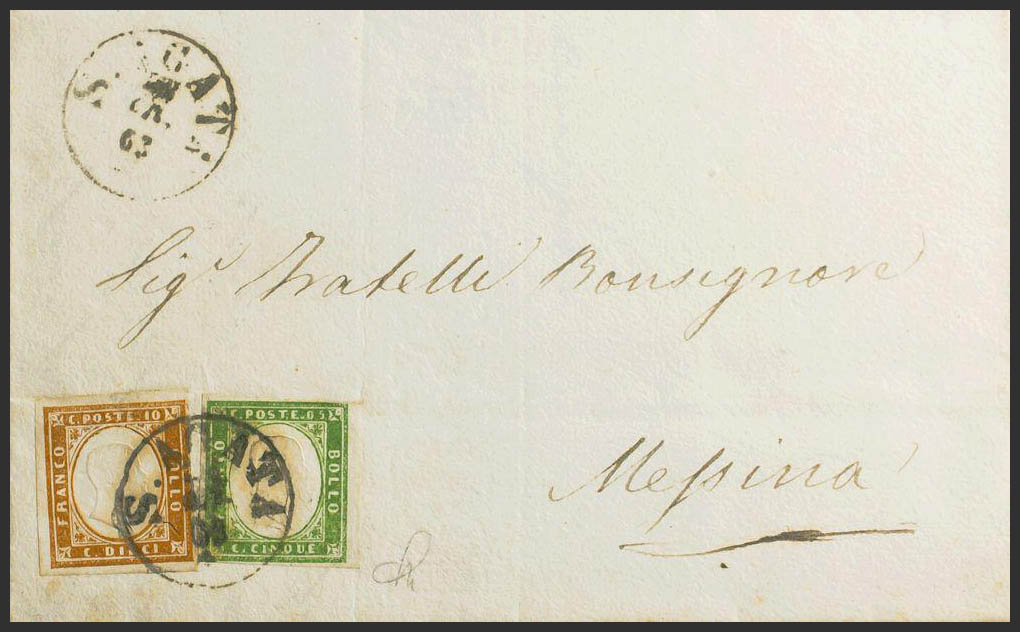 S. AGATA
63
Sig.i Fratelli Bonsignore
Messina
C. POSTE. 10
FRANCO BOLLO
C. DIECI
C. POSTE. 05
BOLLO
C. CINQUE
S. AGATA